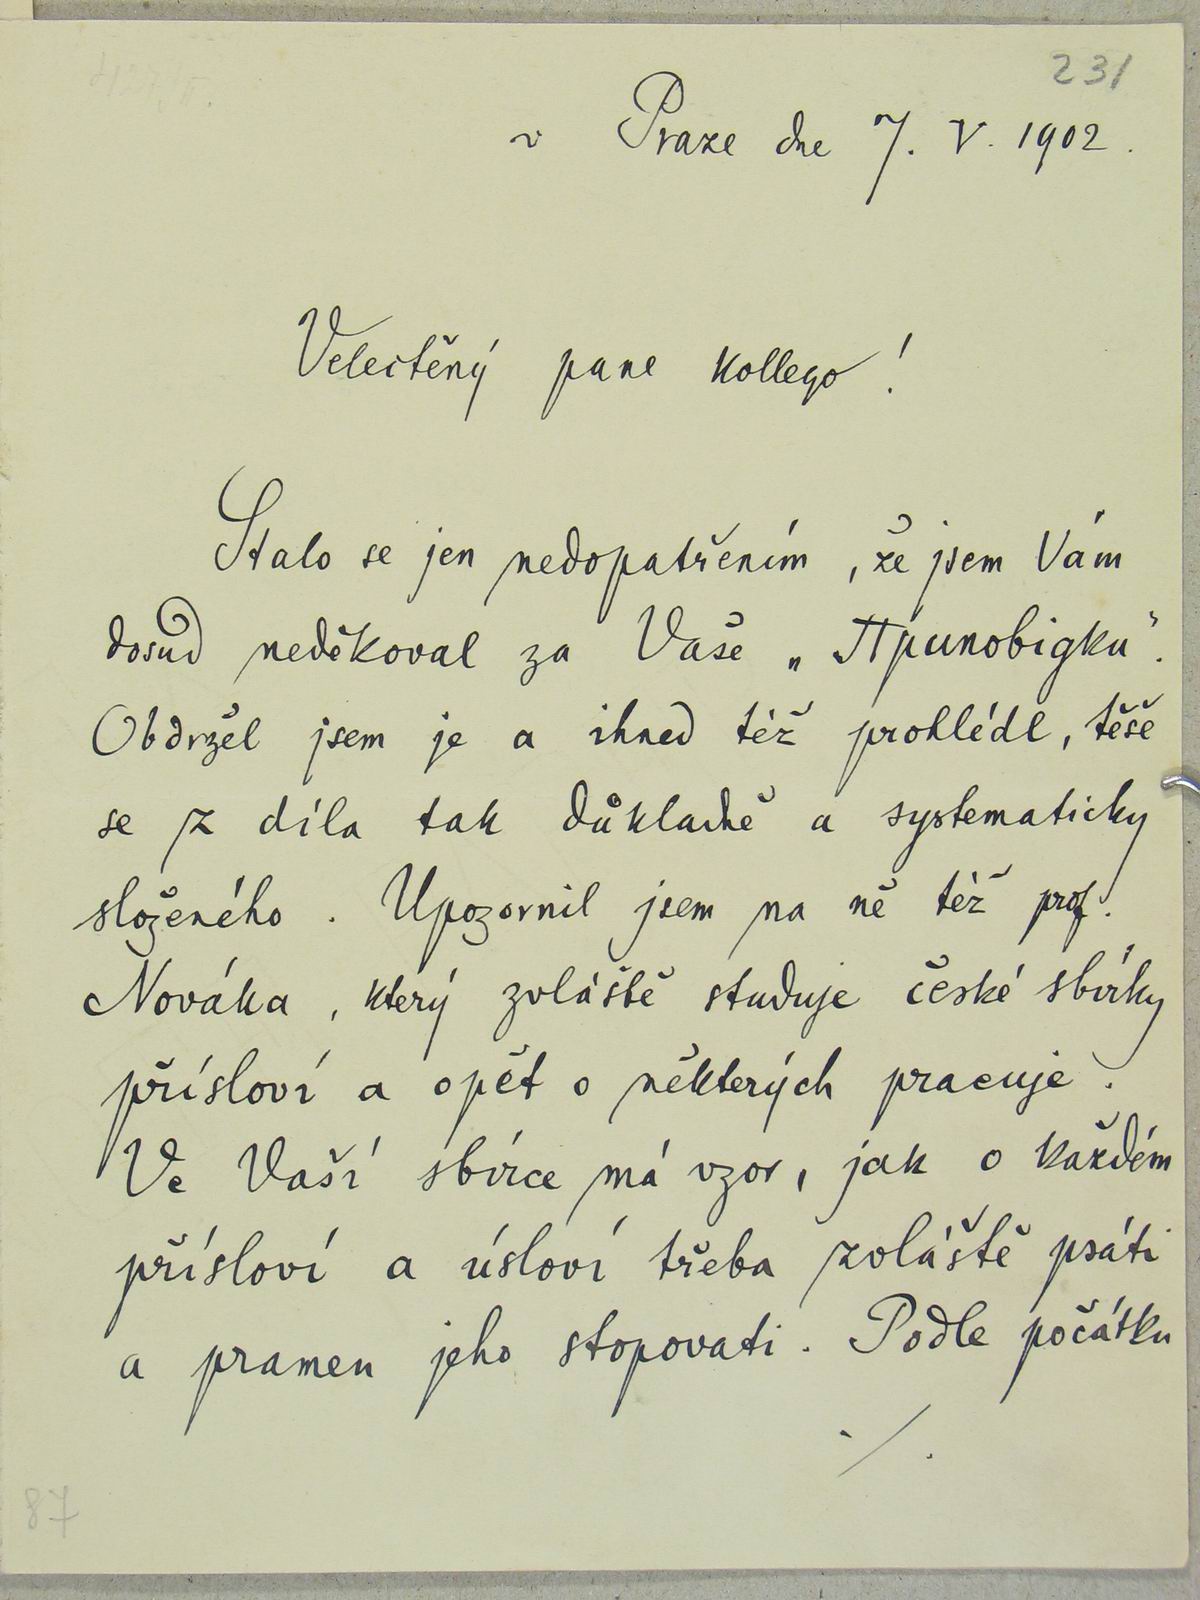 231
v Praze dne 7. V. 1902.
Velectěný pane kollego!
Stalo se jen nedopatřením, že jsem Vám
dosud neděkoval za Vaše „Приповідки“.
Obdržel jsem je a ihned též prohlédl, těše
se z díla tak důkladně a systematicky
složeného. Upozornil jsem na ně též prof.
Nováka, který zvláště studuje české sbírky
přísloví a opět o některých pracuje.
Ve Vaší sbírce má vzor, jak o každém
přísloví a úsloví třeba zvláště psáti
a pramen jeho stopovati. Podle počátku
./.
87